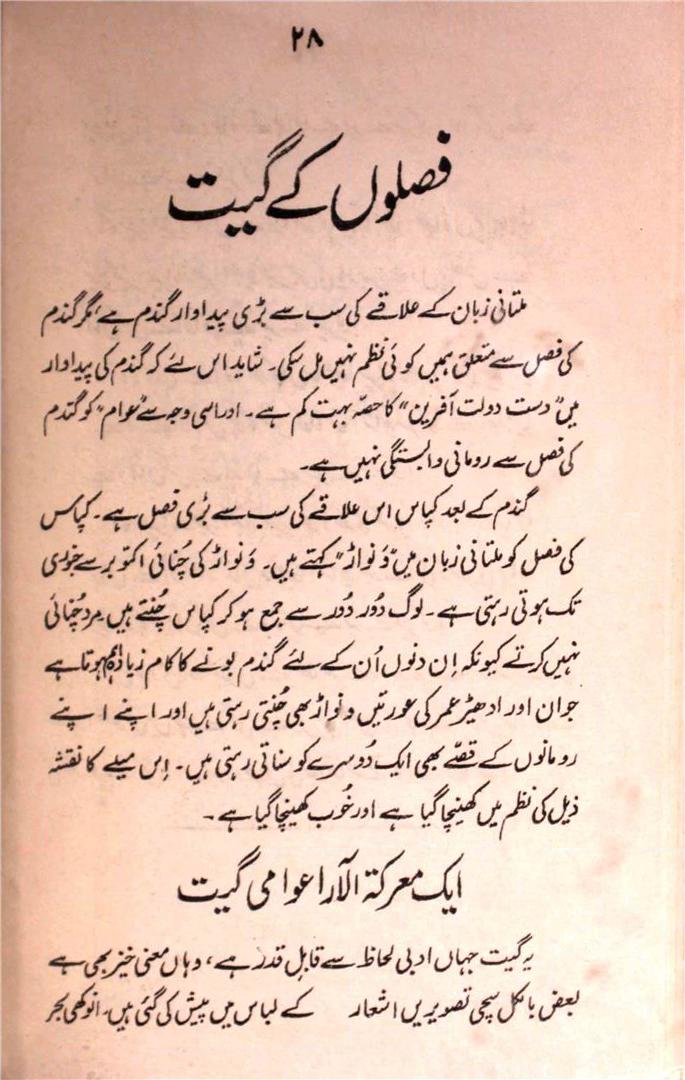 ۲۸
فصلوں کے گیت
ملتانی زبان کے علاقے کی سب سے بڑی پیداوار گندم ہے، مگر گندم
کی فصل سے متعلق ہمیں کوئی نظم نہیں مل سکی۔ شاید اس لئے کہ گندم کی پیداوار
میں "دست دولت آفرین" کا حصہ بہت کم ہے۔ اور اسی وجہ سے "عوام" کو گندم
کی فصل سے رومانی وابستگی نہیں ہے۔
گندم کے بعد کپاس اس علاقے کی سب سے بڑی فصل ہے۔ کپاس
کی فصل کو ملتانی زبان میں "وَنواڑ" کہتے ہیں۔ وَنواڑ کی چُنائی اکتوبر سے جنوری
تک ہوتی رہتی ہے۔ لوگ دُور دُور سے جمع ہو کر کپاس چُنتے ہیں۔ مرد چُنائی
نہیں کرتے کیونکہ اِن دنوں اُن کے لئے گندم بونے کا کام زیادہ اہم ہوتا ہے
جوان اور ادھیڑ عمر کی عورتیں ونواڑ بھی چُنتی رہتی ہیں اور اپنے اپنے
رومانوں کے قصّے بھی ایک دُوسرے کو سناتی رہتی ہیں۔ اِس میلے کا نقشہ
ذیل کی نظم میں کھینچا گیا ہے اور خُوب کھینچا گیا ہے۔
ایک معرکۃ الآرا عوامی گیت
یہ گیت جہاں ادبی لحاظ سے قابلِ قدر ہے، وہاں معنی خیز بھی ہے
بعض بالکل سچی تصویریں اشعار کے لباس میں پیش کی گئی ہیں۔ انوکھی بحر